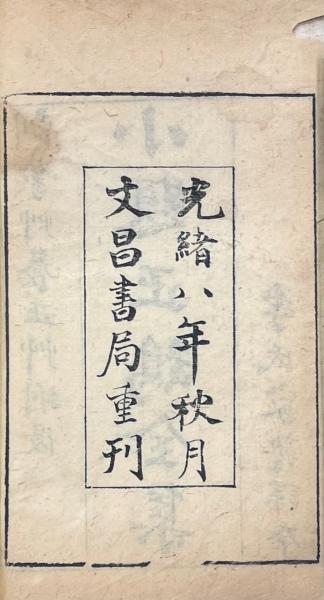 光緒八年秋月
文昌書局重刊